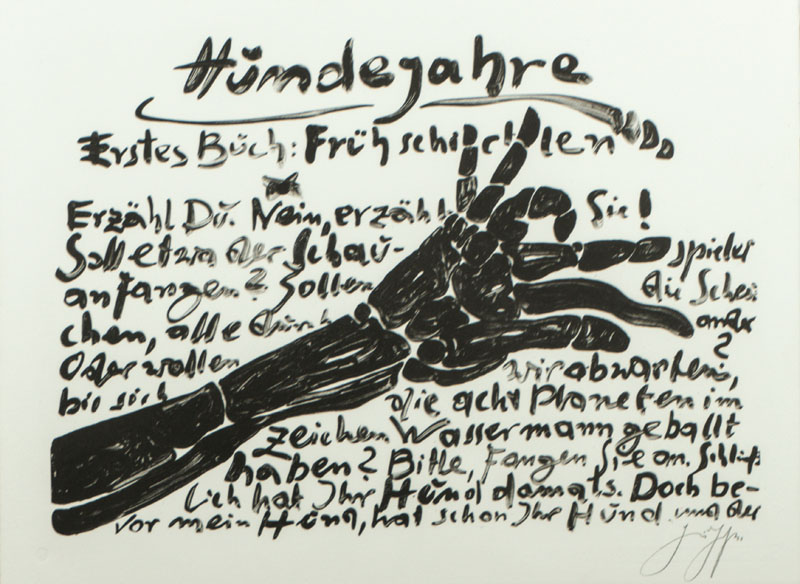 Hundejahre
Erstes Buch: Frühschichten
Erzähl Du. Nein, erzähl Sie!
Soll etwa der Schau- spieler
anfangen? Sollen die Scheu
chen, alle durch ander
?
Oder wollen wir abwarten,
bis sich die acht Planeten im
Zeichen Wassermann geballt
haben? Bitte, fangen Sie an. Schließ
lich hat Ihr Hund damals. Doch be-
vor mein Hund, hat schon Ihr Hund und der